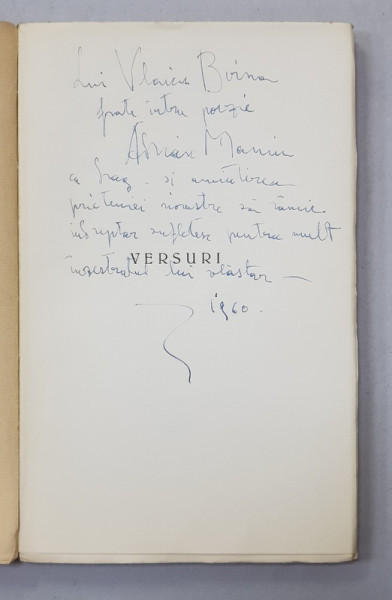 Lui Vlaicu Bârna
frate întru poezie
Adrian Maniu
cu drag și amintirea
prieteniei noastre să rămâie
îndreptar sufletesc pentru mult
înzestratul lui vlăstar —
VERSURI
1960.